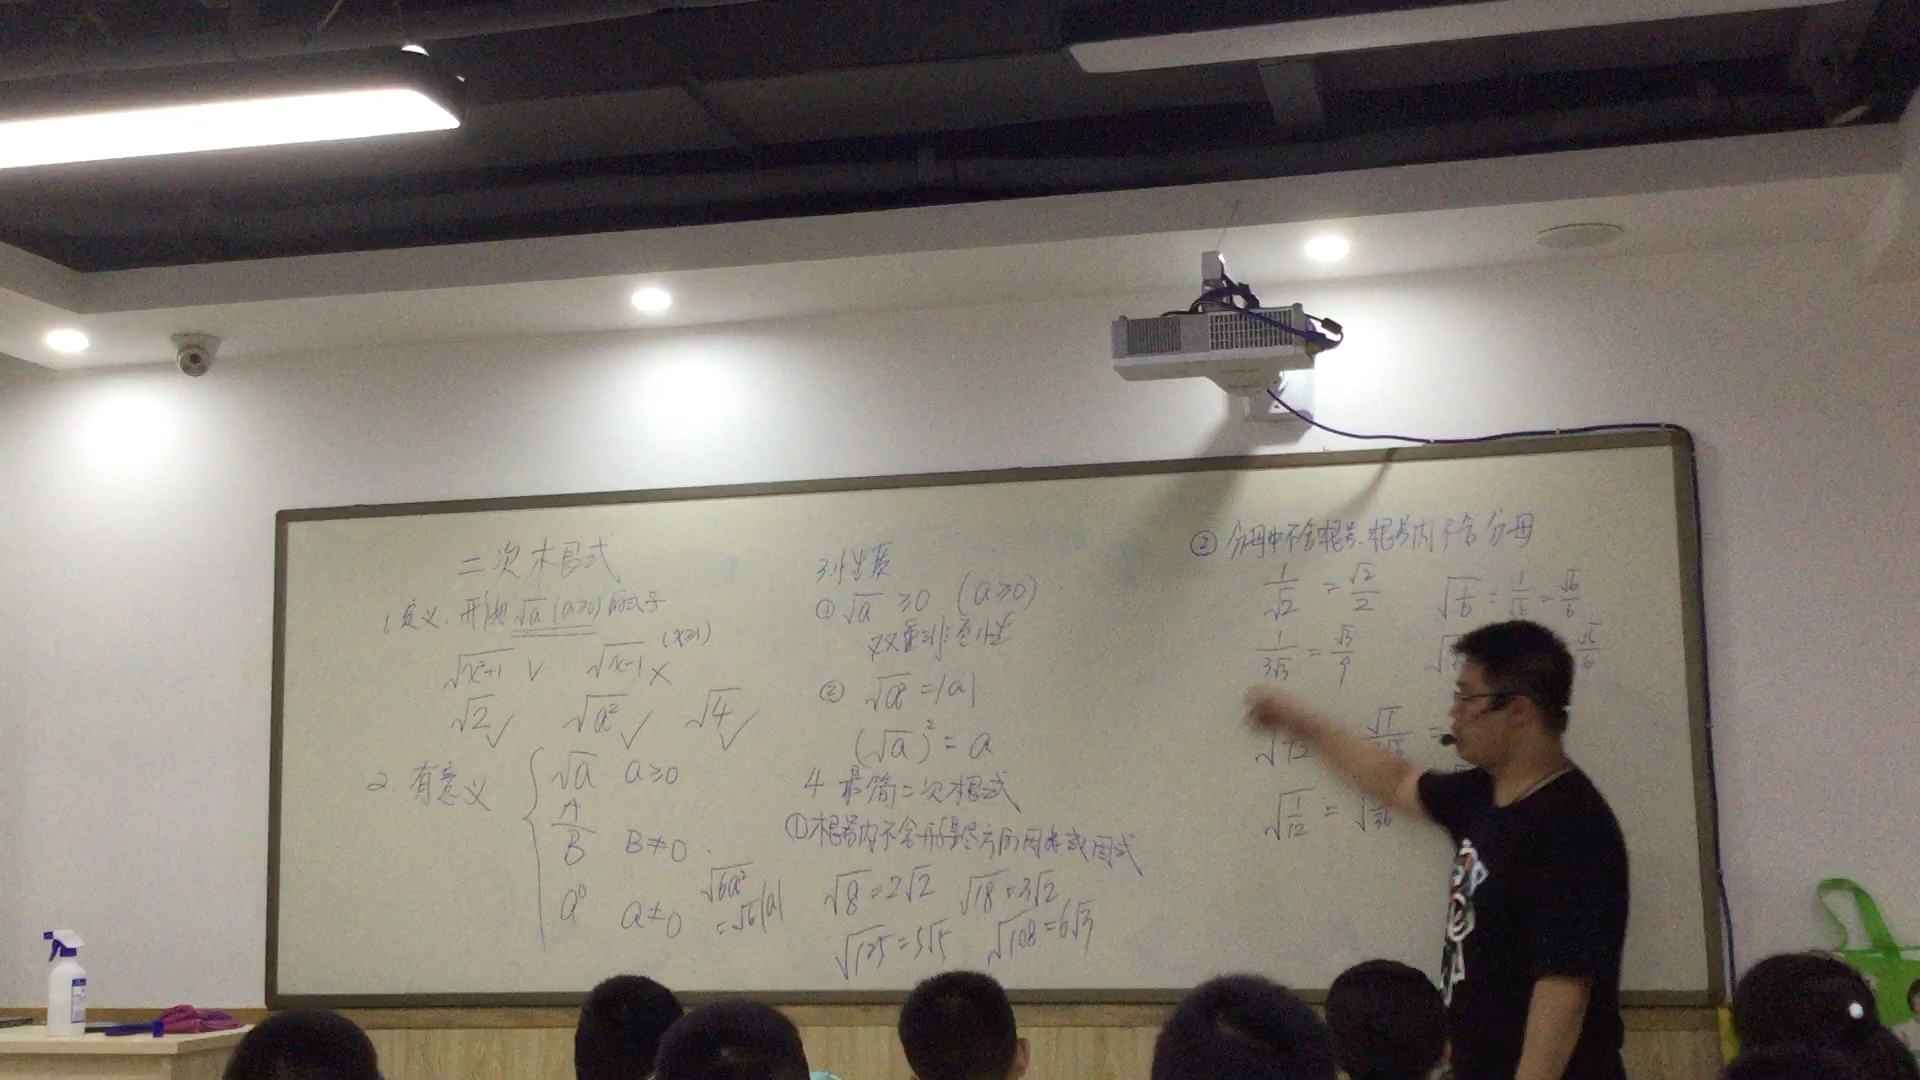 二次根式
1.定义:形如√a(a≥0)的式子
√x²+1 ✓ √x-1 × (x≥1)
√2 ✓ √a² ✓ √4 ✓
2.有意义
√a a≥0
A/B B≠0
a⁰ a≠0
√6a²
=√6|a|
3.性质
① √a ≥0 (a≥0)
双重非负性
② √a² =|a|
(√a)² = a
4 最简二次根式
①根号内不含开得尽方的因数或因式
√8=2√2 √18=3√2
√125=5√5 √108=6√3
② 分母中不含根号、根号内不含分母
1/√2 = √2/2 √1/6 = 1/√6 = √6/6
1/3√3 = √3/9
√1/12 = √